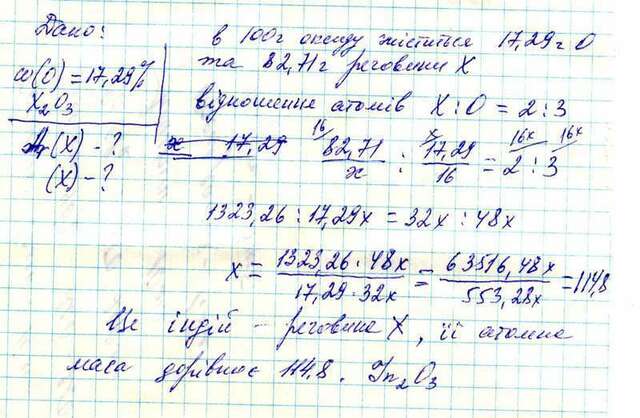 Дано:
в 100г оксиду міститься 17,29г O
та 82,71г речовини X
ω(O) = 17,29%
X₂O₃
відношення атомів X : O = 2 : 3
Ar(X) - ?
(X) - ?
x 17,29
16 x 16x 16x
82,71/x : 17,29/16 = 2 : 3
1323,26 : 17,29x = 32x : 48x
x = 1323,26 · 48x / 17,29 · 32x = 63516,48x / 553,28x = 114,8
Це індій - речовина X, її атомна
маса дорівнює 114,8. In₂O₃